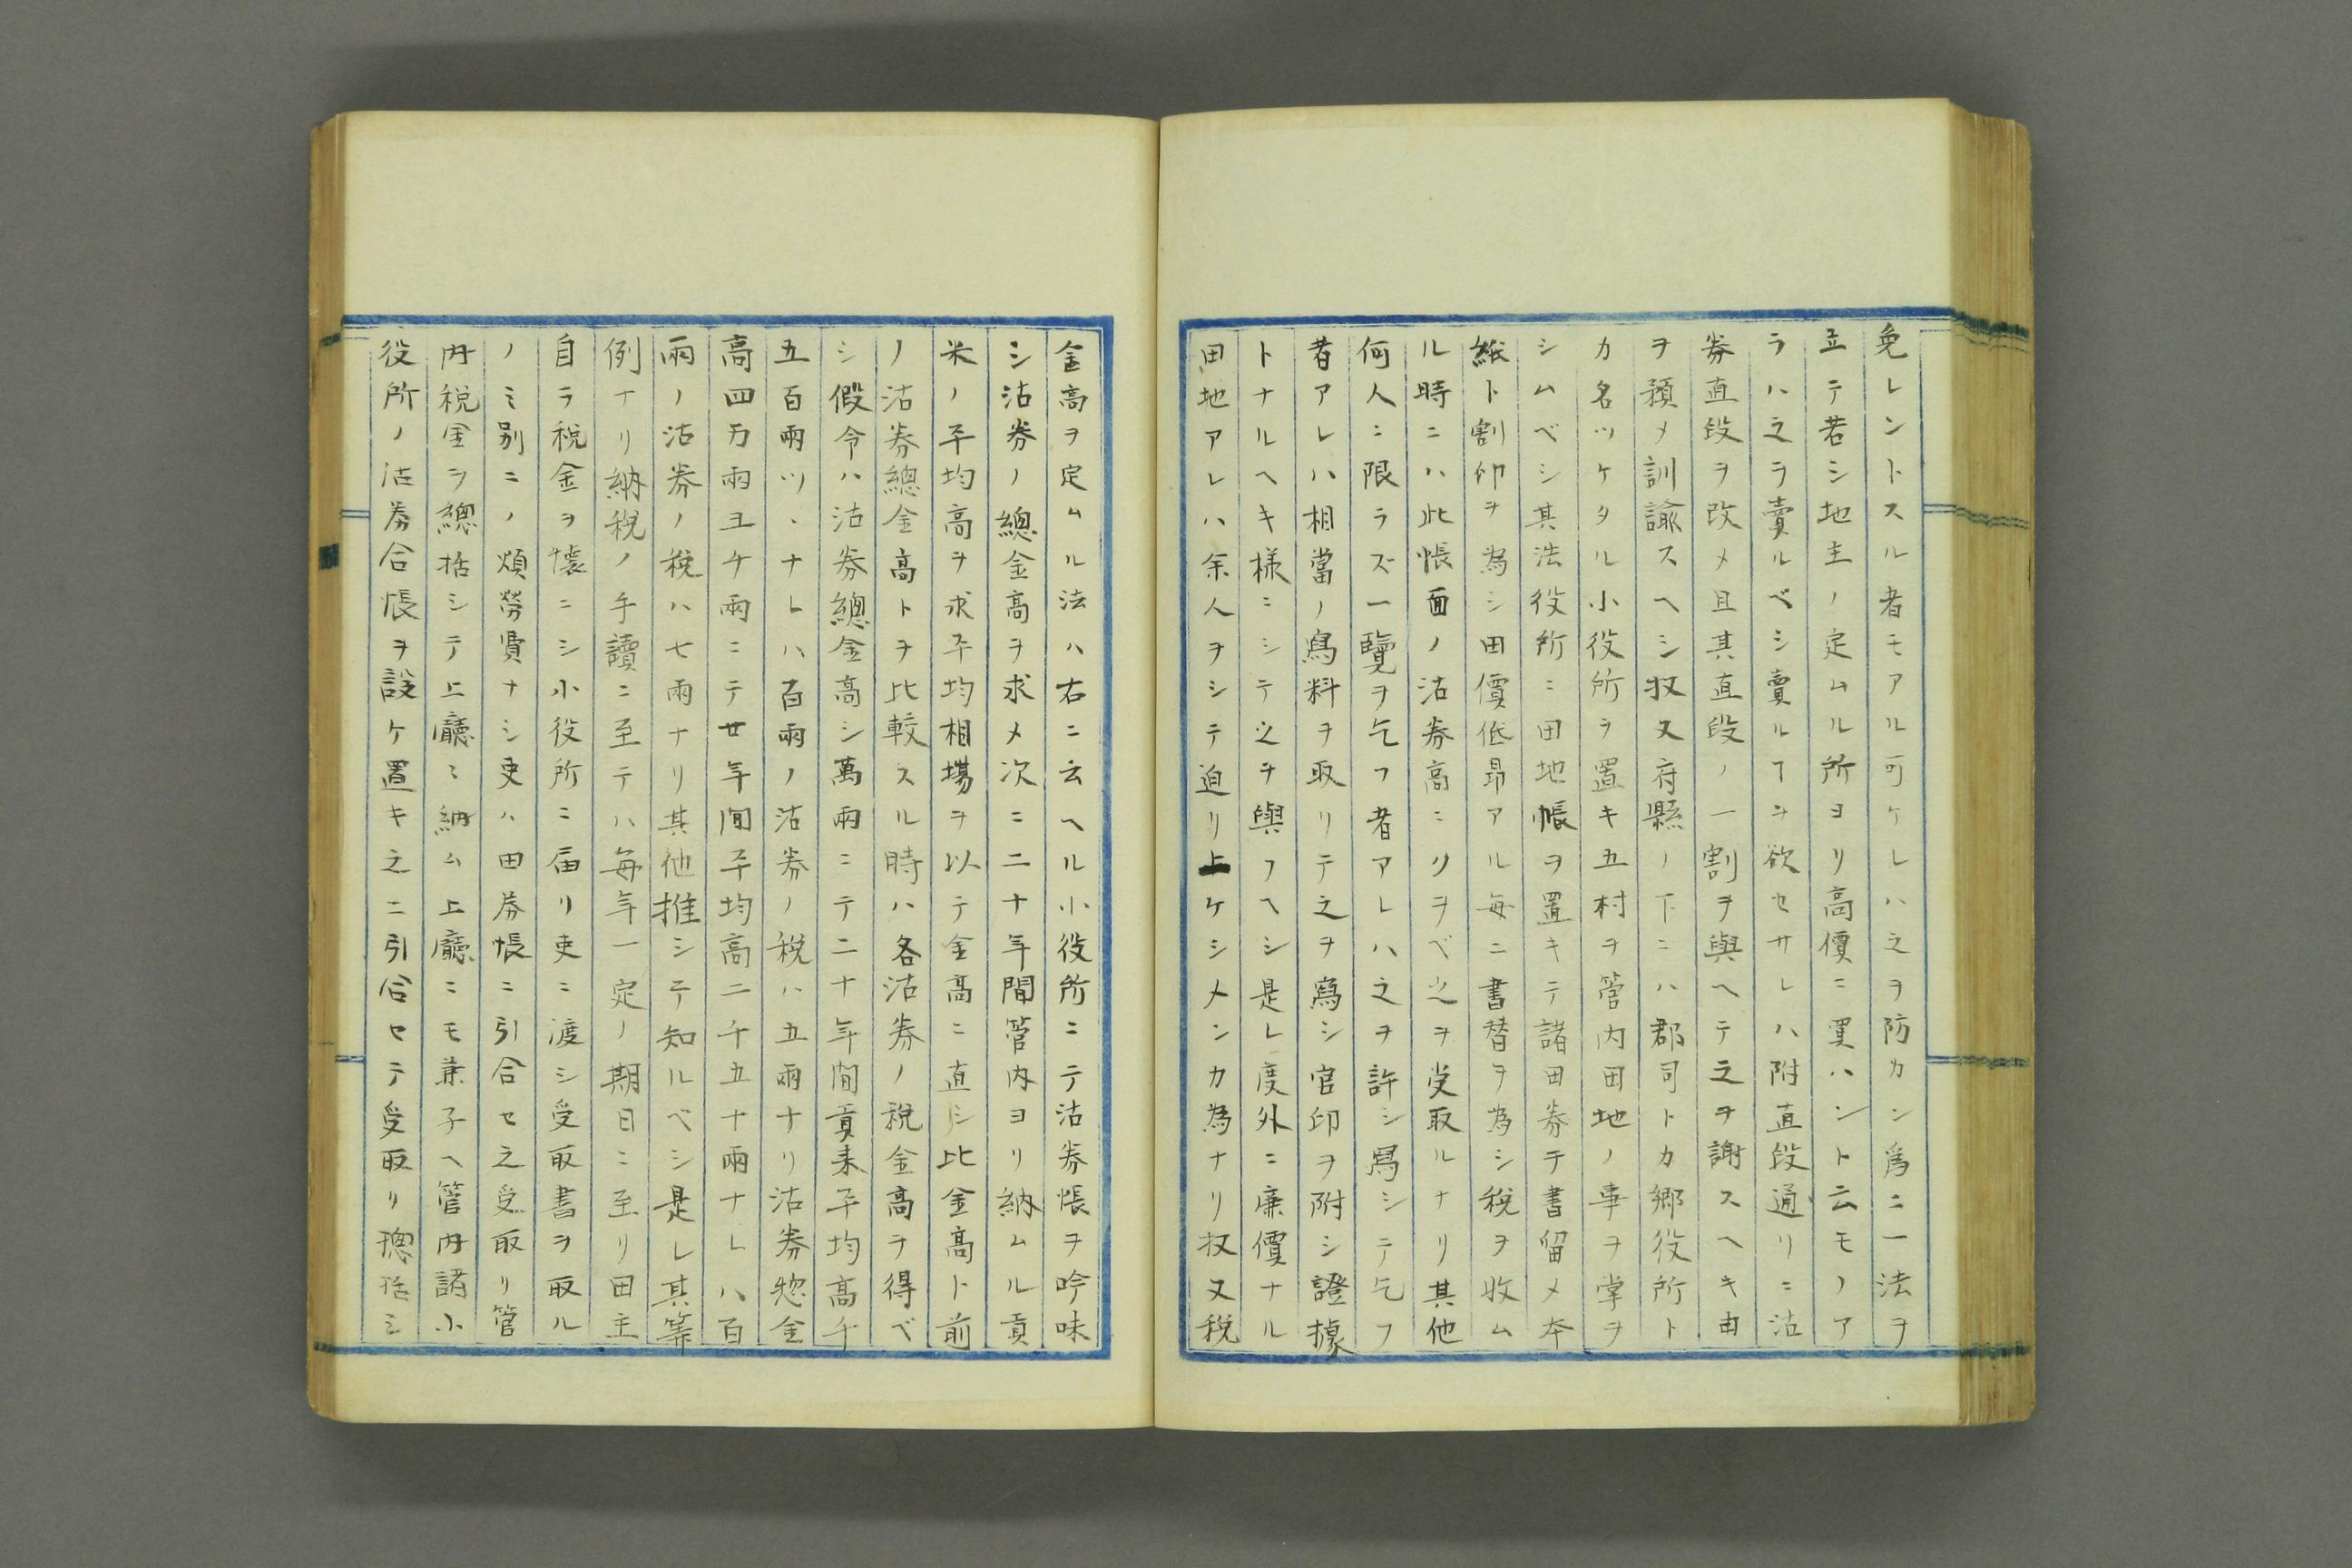 免レントスル者モアル可ケレハ之ヲ防カン爲ニ一法ヲ
立テ若シ地主ノ定ムル所ヨリ高價ニ買ハント云モノア
ラハ之ヲ賣ルベシ賣ルヿヲ欲セサレハ附直段通リニ沽
券直段ヲ改メ且其直段ノ一割ヲ與ヘテ之ヲ謝スヘキ由
ヲ預メ訓諭スヘシ扨又府縣ノ下ニハ郡司トカ郷役所ト
カ名ツケタル小役所ヲ置キ五村ヲ管内田地ノ事ヲ掌ヲ
シムベシ其法役所ニ田地帳ヲ置キテ諸田券テ書留メ本
紙ト割印ヲ為シ田價低昂アル毎ニ書替ヲ為シ税ヲ收ム
ル時ニハ此帳面ノ沽券高ニクヲベ之ヲ受取ルナリ其他
何人ニ限ラズ一覽ヲ乞フ者アレハ之ヲ許シ寫シテ乞フ
者アレハ相當ノ寫料ヲ取リテ之ヲ寫シ官印ヲ附シ證據
トナルヘキ樣ニシテ之ヲ與フヘシ是レ度外ニ廉價ナル
田地アレハ余人ヲシテ迫リ上ケシメンカ為ナリ扨又税
金高ヲ定ムル法ハ右ニ云ヘル小役所ニテ沽券帳ヲ吟味
シ沽券ノ總金高ヲ求メ次ニ二十年間管内ヨリ納ムル貢
米ノ平均高ヲ求平均相場ヲ以テ金高ニ直シ此金高ト前
ノ沽券總金高トヲ比較スル時ハ各沽券ノ税金高ヲ得ベ
シ假令ハ沽券總金高シ萬兩ニテ二十年間貢耒平均高千
五百兩ツヽナレハ百兩ノ沽券ノ税ハ五兩ナリ沽券惣金
高四万兩ヨケ兩ニテ廿年間平均高二千五十兩ナレハ百
兩ノ沽券ノ税ハ七兩ナリ其他推シテ知ルベシ是レ其等
例ナリ納税ノ手讀ニ至テハ毎年一定ノ期日ニ至リ田主
自ラ税金ヲ懐ニシ小役所ニ届リ吏ニ渡シ受取書ヲ取ル
ノミ別ニノ煩勞費ナシ吏ハ田券帳ニ引合セ之受取リ管
内税金ヲ總括シテ上廳ミ納ム上廳ニモ兼子ヘ管内諸小
役所ノ沽券合帳ヲ設ケ置キ之ニ引合セテ受取リ總括シ